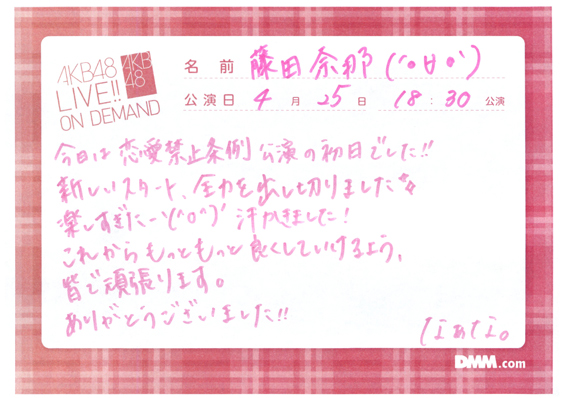 AKB48
LIVE!!
ON DEMAND
AKB
48
名前 藤田奈那(°∀°)
公演日 4月25日 18:30公演
今日は恋愛禁止条例公演の初日でした!!
新しいスタート、全力を出し切りました☆
楽しすぎたー\(^o^)/汗かきました!
これからもっともっと良くしていけるよう、
皆で頑張ります。
ありがとうございました!!
なぁな。
DMM.com